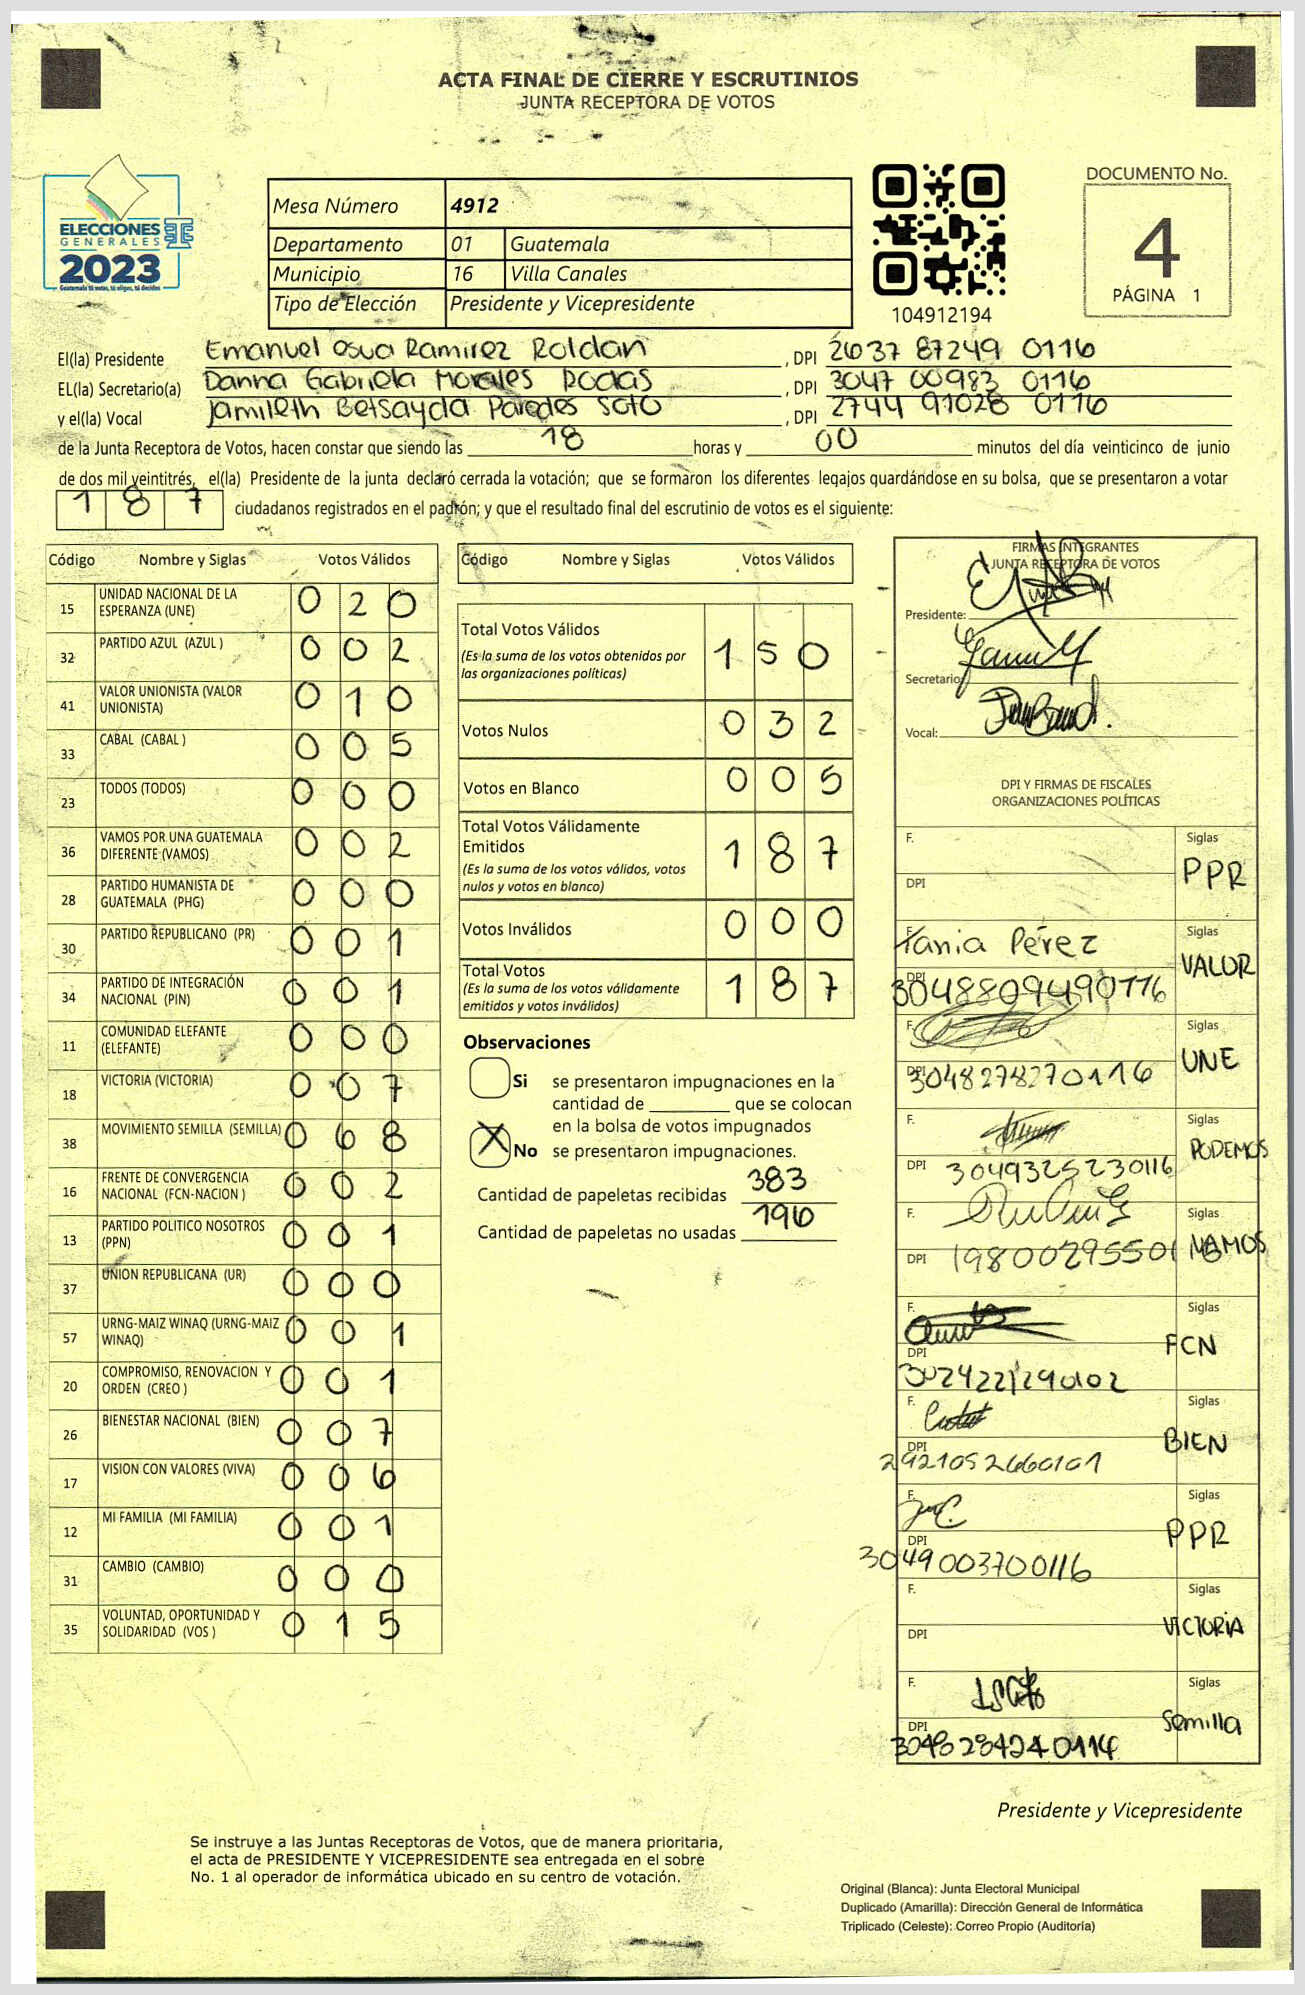 ACTA FINAL DE CIERRE Y ESCRUTINIOS
JUNTA RECEPTORA DE VOTOS
ELECCIONES
GENERALES
2023
Guatemala tú votas, tú eliges, tú decides
Mesa Número 4912
Departamento 01 Guatemala
Municipio 16 Villa Canales
Tipo de Elección Presidente y Vicepresidente
104912194
DOCUMENTO No.
4
PÁGINA 1
El(la) Presidente Emanuel Osua Ramirez Roldan, DPI 2637 87249 0116
EL(la) Secretario(a) Danna Gabriela Morales Rodas, DPI 3047 00983 0116
y el(la) Vocal Jamileth Betsayda Paredes Soto, DPI 2744 91028 0116
de la Junta Receptora de Votos, hacen constar que siendo las 18 horas y 00 minutos del día veinticinco de junio
de dos mil veintitrés, el(la) Presidente de la junta declaró cerrada la votación; que se formaron los diferentes legajos guardándose en su bolsa, que se presentaron a votar
187 ciudadanos registrados en el padrón; y que el resultado final del escrutinio de votos es el siguiente:
Código Nombre y Siglas Votos Válidos
15 UNIDAD NACIONAL DE LA ESPERANZA (UNE) 020
32 PARTIDO AZUL (AZUL ) 002
41 VALOR UNIONISTA (VALOR UNIONISTA) 010
33 CABAL (CABAL ) 005
23 TODOS (TODOS) 000
36 VAMOS POR UNA GUATEMALA DIFERENTE (VAMOS) 002
28 PARTIDO HUMANISTA DE GUATEMALA (PHG) 000
30 PARTIDO REPUBLICANO (PR) 001
34 PARTIDO DE INTEGRACIÓN NACIONAL (PIN) 001
11 COMUNIDAD ELEFANTE (ELEFANTE) 000
18 VICTORIA (VICTORIA) 007
38 MOVIMIENTO SEMILLA (SEMILLA) 068
16 FRENTE DE CONVERGENCIA NACIONAL (FCN-NACION ) 002
13 PARTIDO POLITICO NOSOTROS (PPN) 001
37 UNION REPUBLICANA (UR) 000
57 URNG-MAIZ WINAQ (URNG-MAIZ WINAQ) 001
20 COMPROMISO, RENOVACION Y ORDEN (CREO ) 001
26 BIENESTAR NACIONAL (BIEN) 007
17 VISION CON VALORES (VIVA) 006
12 MI FAMILIA (MI FAMILIA) 001
31 CAMBIO (CAMBIO) 000
35 VOLUNTAD, OPORTUNIDAD Y SOLIDARIDAD (VOS ) 015
Código Nombre y Siglas Votos Válidos
Total Votos Válidos 150
(Es la suma de los votos obtenidos por
las organizaciones políticas)
Votos Nulos 032
Votos en Blanco 005
Total Votos Válidamente
Emitidos 187
(Es la suma de los votos válidos, votos
nulos y votos en blanco)
Votos Inválidos 000
Total Votos 187
(Es la suma de los votos válidamente
emitidos y votos inválidos)
Observaciones
Si se presentaron impugnaciones en la
cantidad de ________ que se colocan
en la bolsa de votos impugnados
X No se presentaron impugnaciones.
Cantidad de papeletas recibidas 383
Cantidad de papeletas no usadas 196
FIRMAS INTEGRANTES
JUNTA RECEPTORA DE VOTOS
Presidente:
Secretario:
Vocal:
DPI Y FIRMAS DE FISCALES
ORGANIZACIONES POLÍTICAS
F. Siglas
DPI PPR
F. Tania Pérez Siglas
DPI 3048809490116 VALOR
F. Siglas
DPI 3048278270116 UNE
F. Siglas
DPI 3049325230116 PODEMOS
F. Siglas
DPI 19800295501 VAMOS
F. Siglas
DPI 3024221290102 FCN
F. Siglas
DPI 2921052660101 BIEN
F. Siglas
DPI 3049003700116 PPR
F. Siglas
DPI VICTORIA
F. Siglas
DPI 3048284240114 Semilla
Presidente y Vicepresidente
Se instruye a las Juntas Receptoras de Votos, que de manera prioritaria,
el acta de PRESIDENTE Y VICEPRESIDENTE sea entregada en el sobre
No. 1 al operador de informática ubicado en su centro de votación.
Original (Blanca): Junta Electoral Municipal
Duplicado (Amarilla): Dirección General de Informática
Triplicado (Celeste): Correo Propio (Auditoría)